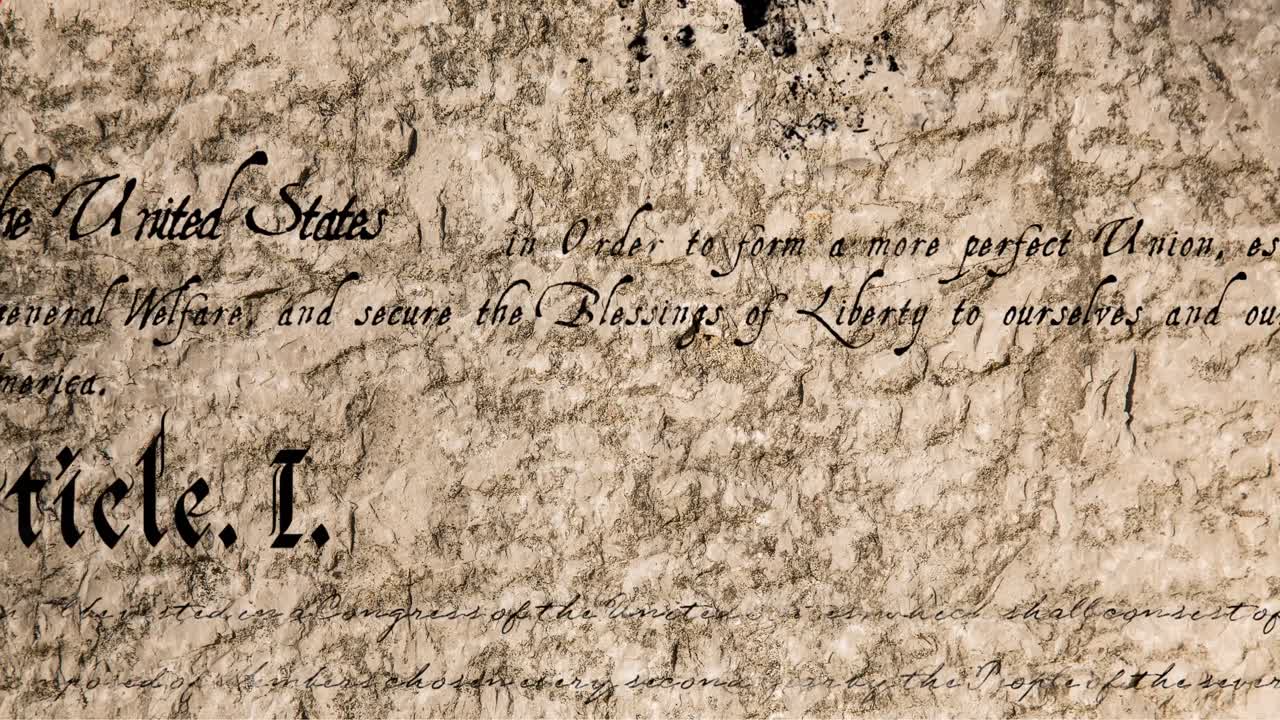 he United States
in Order to form a more perfect Union, es
general Welfare, and secure the Blessings of Liberty to ourselves and ou
merica.
ticle. I.
vested in a Congress of the United which shall consist of
posed of Members chosen every second by the People of the sever